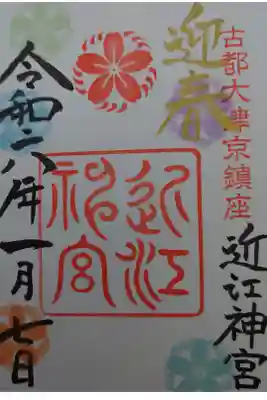 迎春
古都大津京鎮座
近江神宮
近江神宮
令和八年一月七日